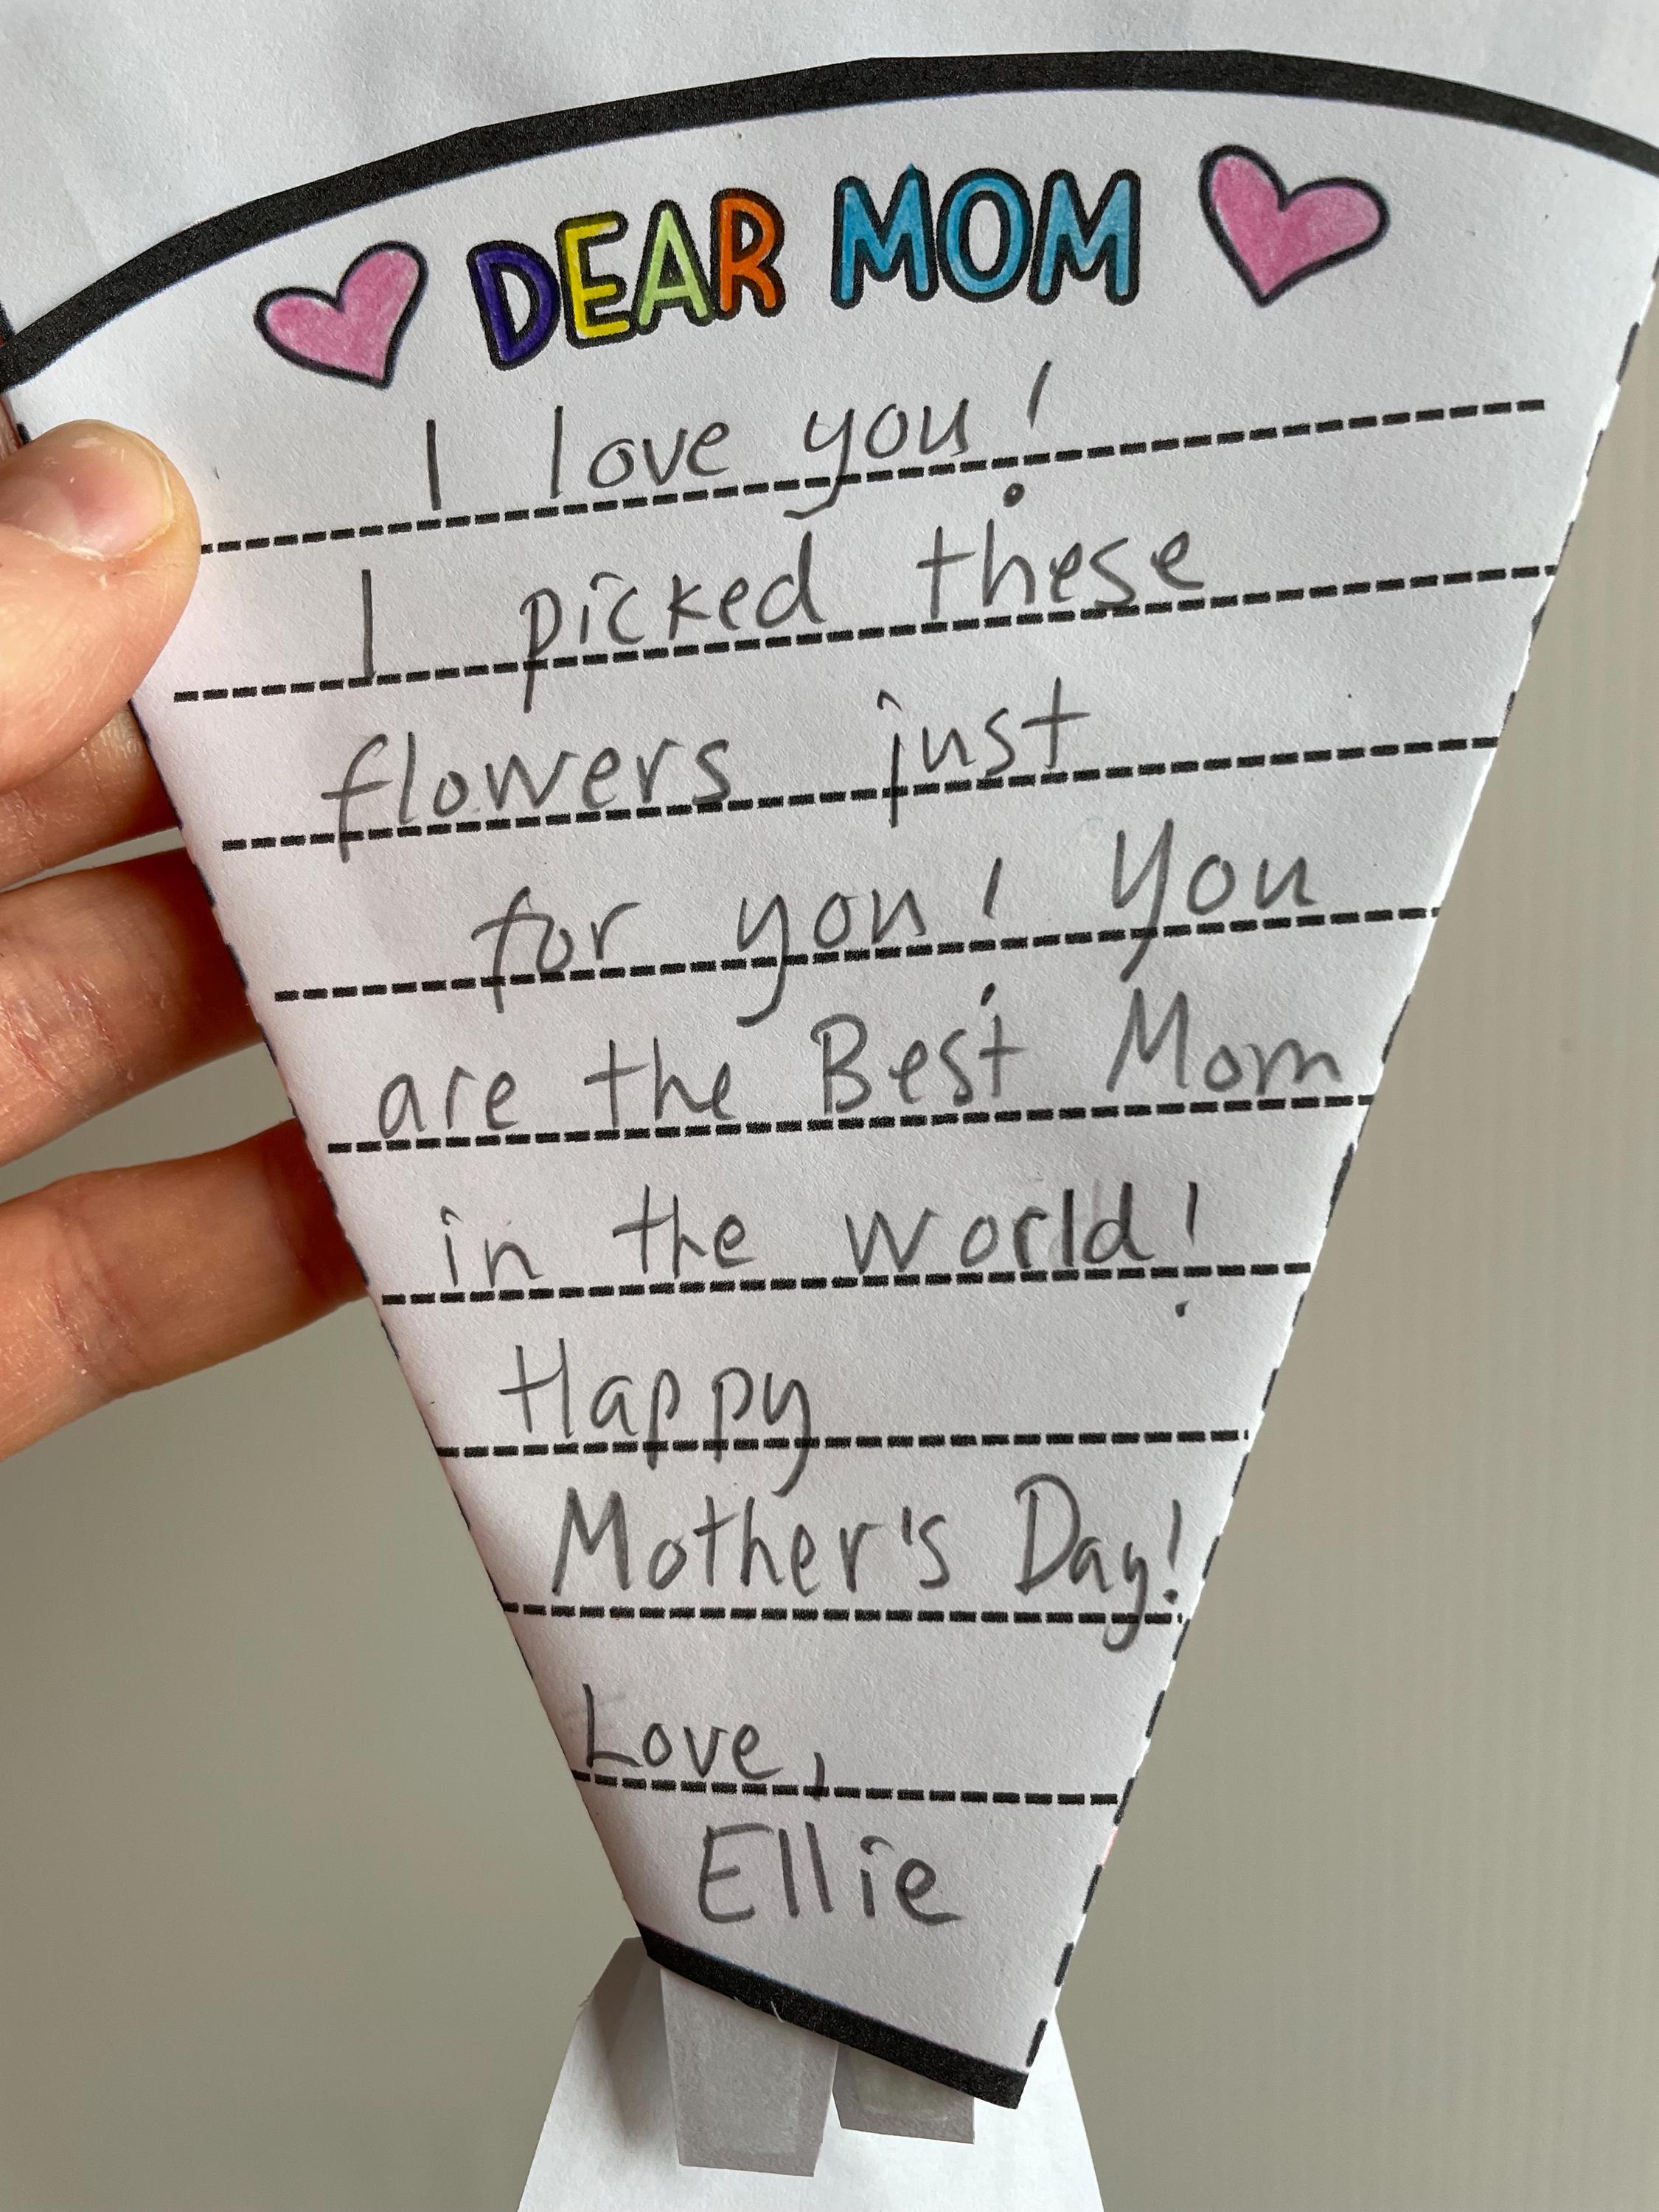 DEAR MOM
I love you!
I picked these
flowers just
for you! You
are the Best Mom
in the world!
Happy
Mother's Day!
Love,
Ellie